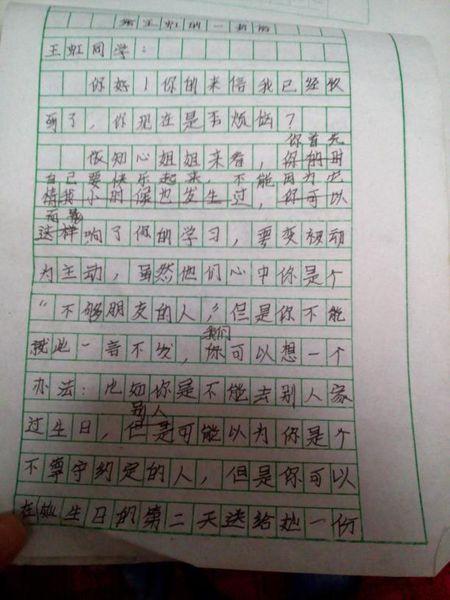 给王虹的一封信
王虹同学：
你好！你的来信我已经收
到了，你现在是否烦恼？
你首先
做知心姐姐来看，你的时
自己要快乐起来，不能因为它
情我小时候也发生过，你可以
而影
这样响了你的学习，要变被动
为主动，虽然他们心中你是个
“不够朋友的人”，但是你不能
我们
就此一言不发，你可以想一个
办法：比如你是不能去别人家
别人
过生日，但是可能以为你是个
不尊守约定的人，但是你可以
在她生日的第二天送给她一份